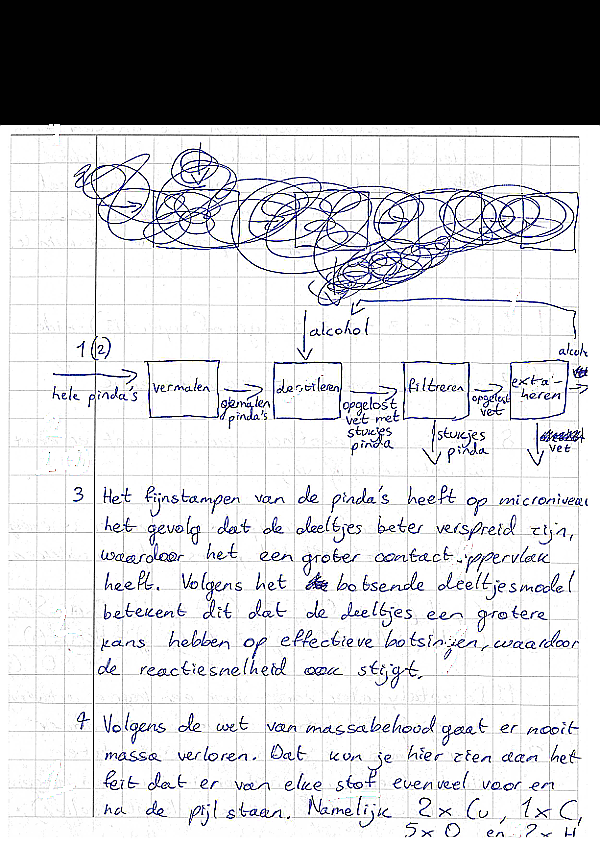 alcohol
1(2)
alcoh
hele pinda's
vermalen
gemalen
pinda's
destileren
opgelost
vet met
stukjes
pinda
filtreren
stukjes
pinda
opgelost
vet
extra-
heren
vet
3 Het fijnstampen van de pinda's heeft op microniveau
het gevolg dat de deeltjes beter verspreid zijn,
waardoor het een groter contact ippervlak
heeft. Volgens het botsende deeltjesmodel
betekent dit dat de deeltjes een grotere
kans hebben op effectieve botsingen, waardoor
de reactiesnelheid ook stijgt.
4 Volgens de wet van massabehoud gaat er nooit
massa verloren. Dat kun je hier zien aan het
feit dat er van elke stof evenveel voor en
na de pijl staan. Namelijk 2x Cu, 1x C,
5x O en 2x H